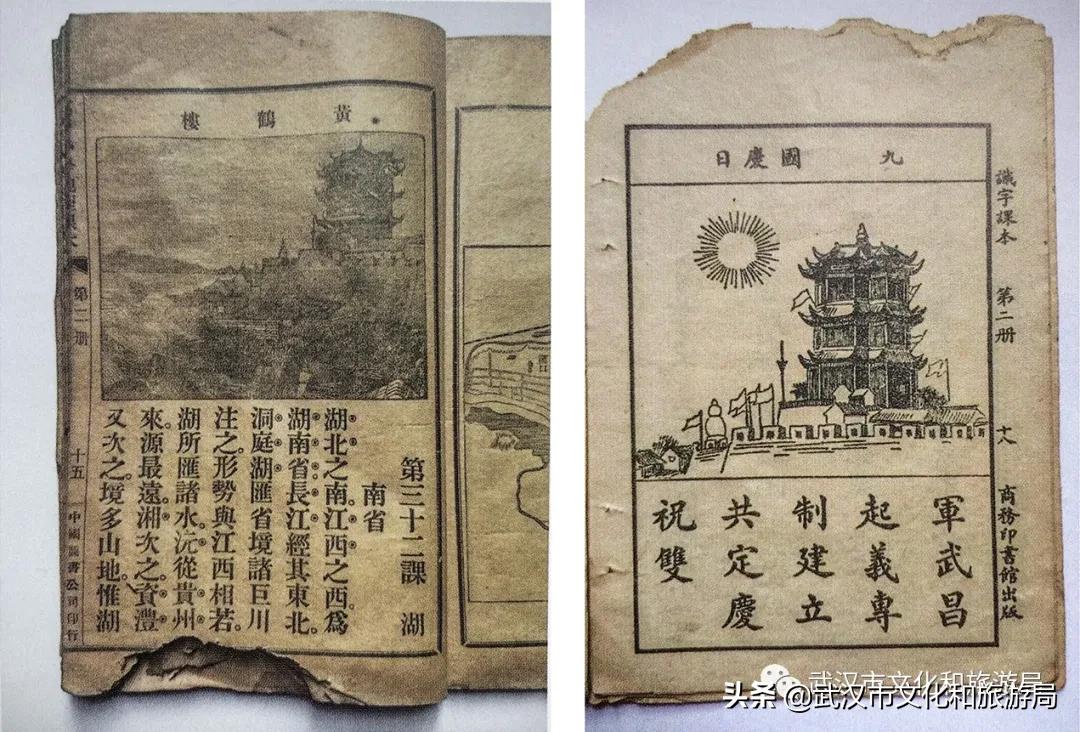 黃鶴樓
第三十二課 湖
南省
湖北之南。江西之西。爲
湖南省。長江經其東北。
洞庭湖匯省境諸巨川
注之。形勢與江西相若。
湖所匯諸水。沅從貴州
來。源最遠。湘次之。資澧
又次之。境多山地。惟湖
課本
十五
中國圖書公司印行
識字課本 第二册 十八 商務印書館出版
九 國慶日
軍武昌
起義專
制建立
共定慶
祝雙
武汉市文化和旅游局
头条 @武汉市文化和旅游局